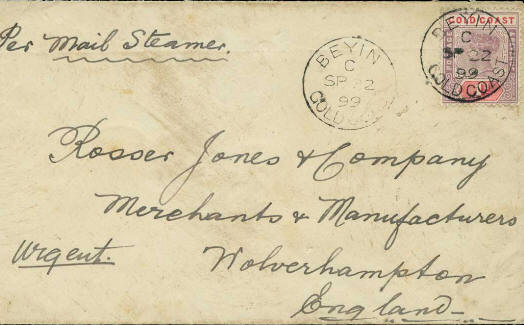 Per Mail Steamer.
BEYIN
C
SP 22
99
GOLD COAST
GOLD COAST
BEYIN
C
SP 22
99
GOLD COAST
Rosser Jones & Company
Merchants & Manufacturers
Urgent.
Wolverhampton
England